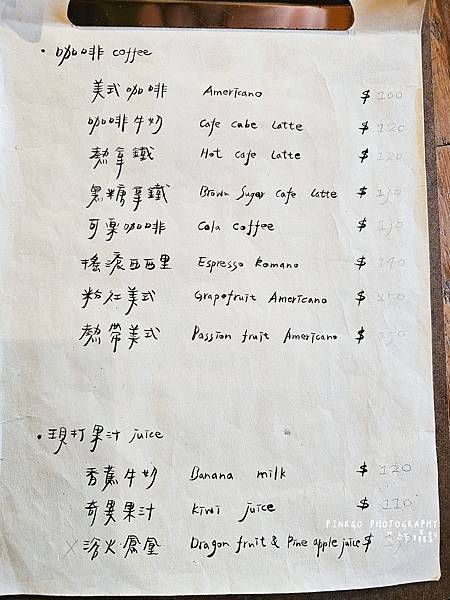 • 咖啡 coffee
美式咖啡 Americano $ 100
咖啡牛奶 Cafe cube latte $ 120
熱拿鐵 Hot cafe latte $ 120
黑糖拿鐵 Brown Sugar cafe latte $
可樂咖啡 Cola coffee $
搖滾西西里 Espresso Romano $ 140
粉红美式 Grapefruit Americano $ 150
熱帶美式 Passion fruit Americano $ 150
• 現打果汁 juice
香蕉牛奶 Banana milk $ 120
奇異果汁 kiwi juice $ 110
PINKGO PHOTOGRAPHY
X 浴火鳳凰 Dragon fruit & Pine apple juice $